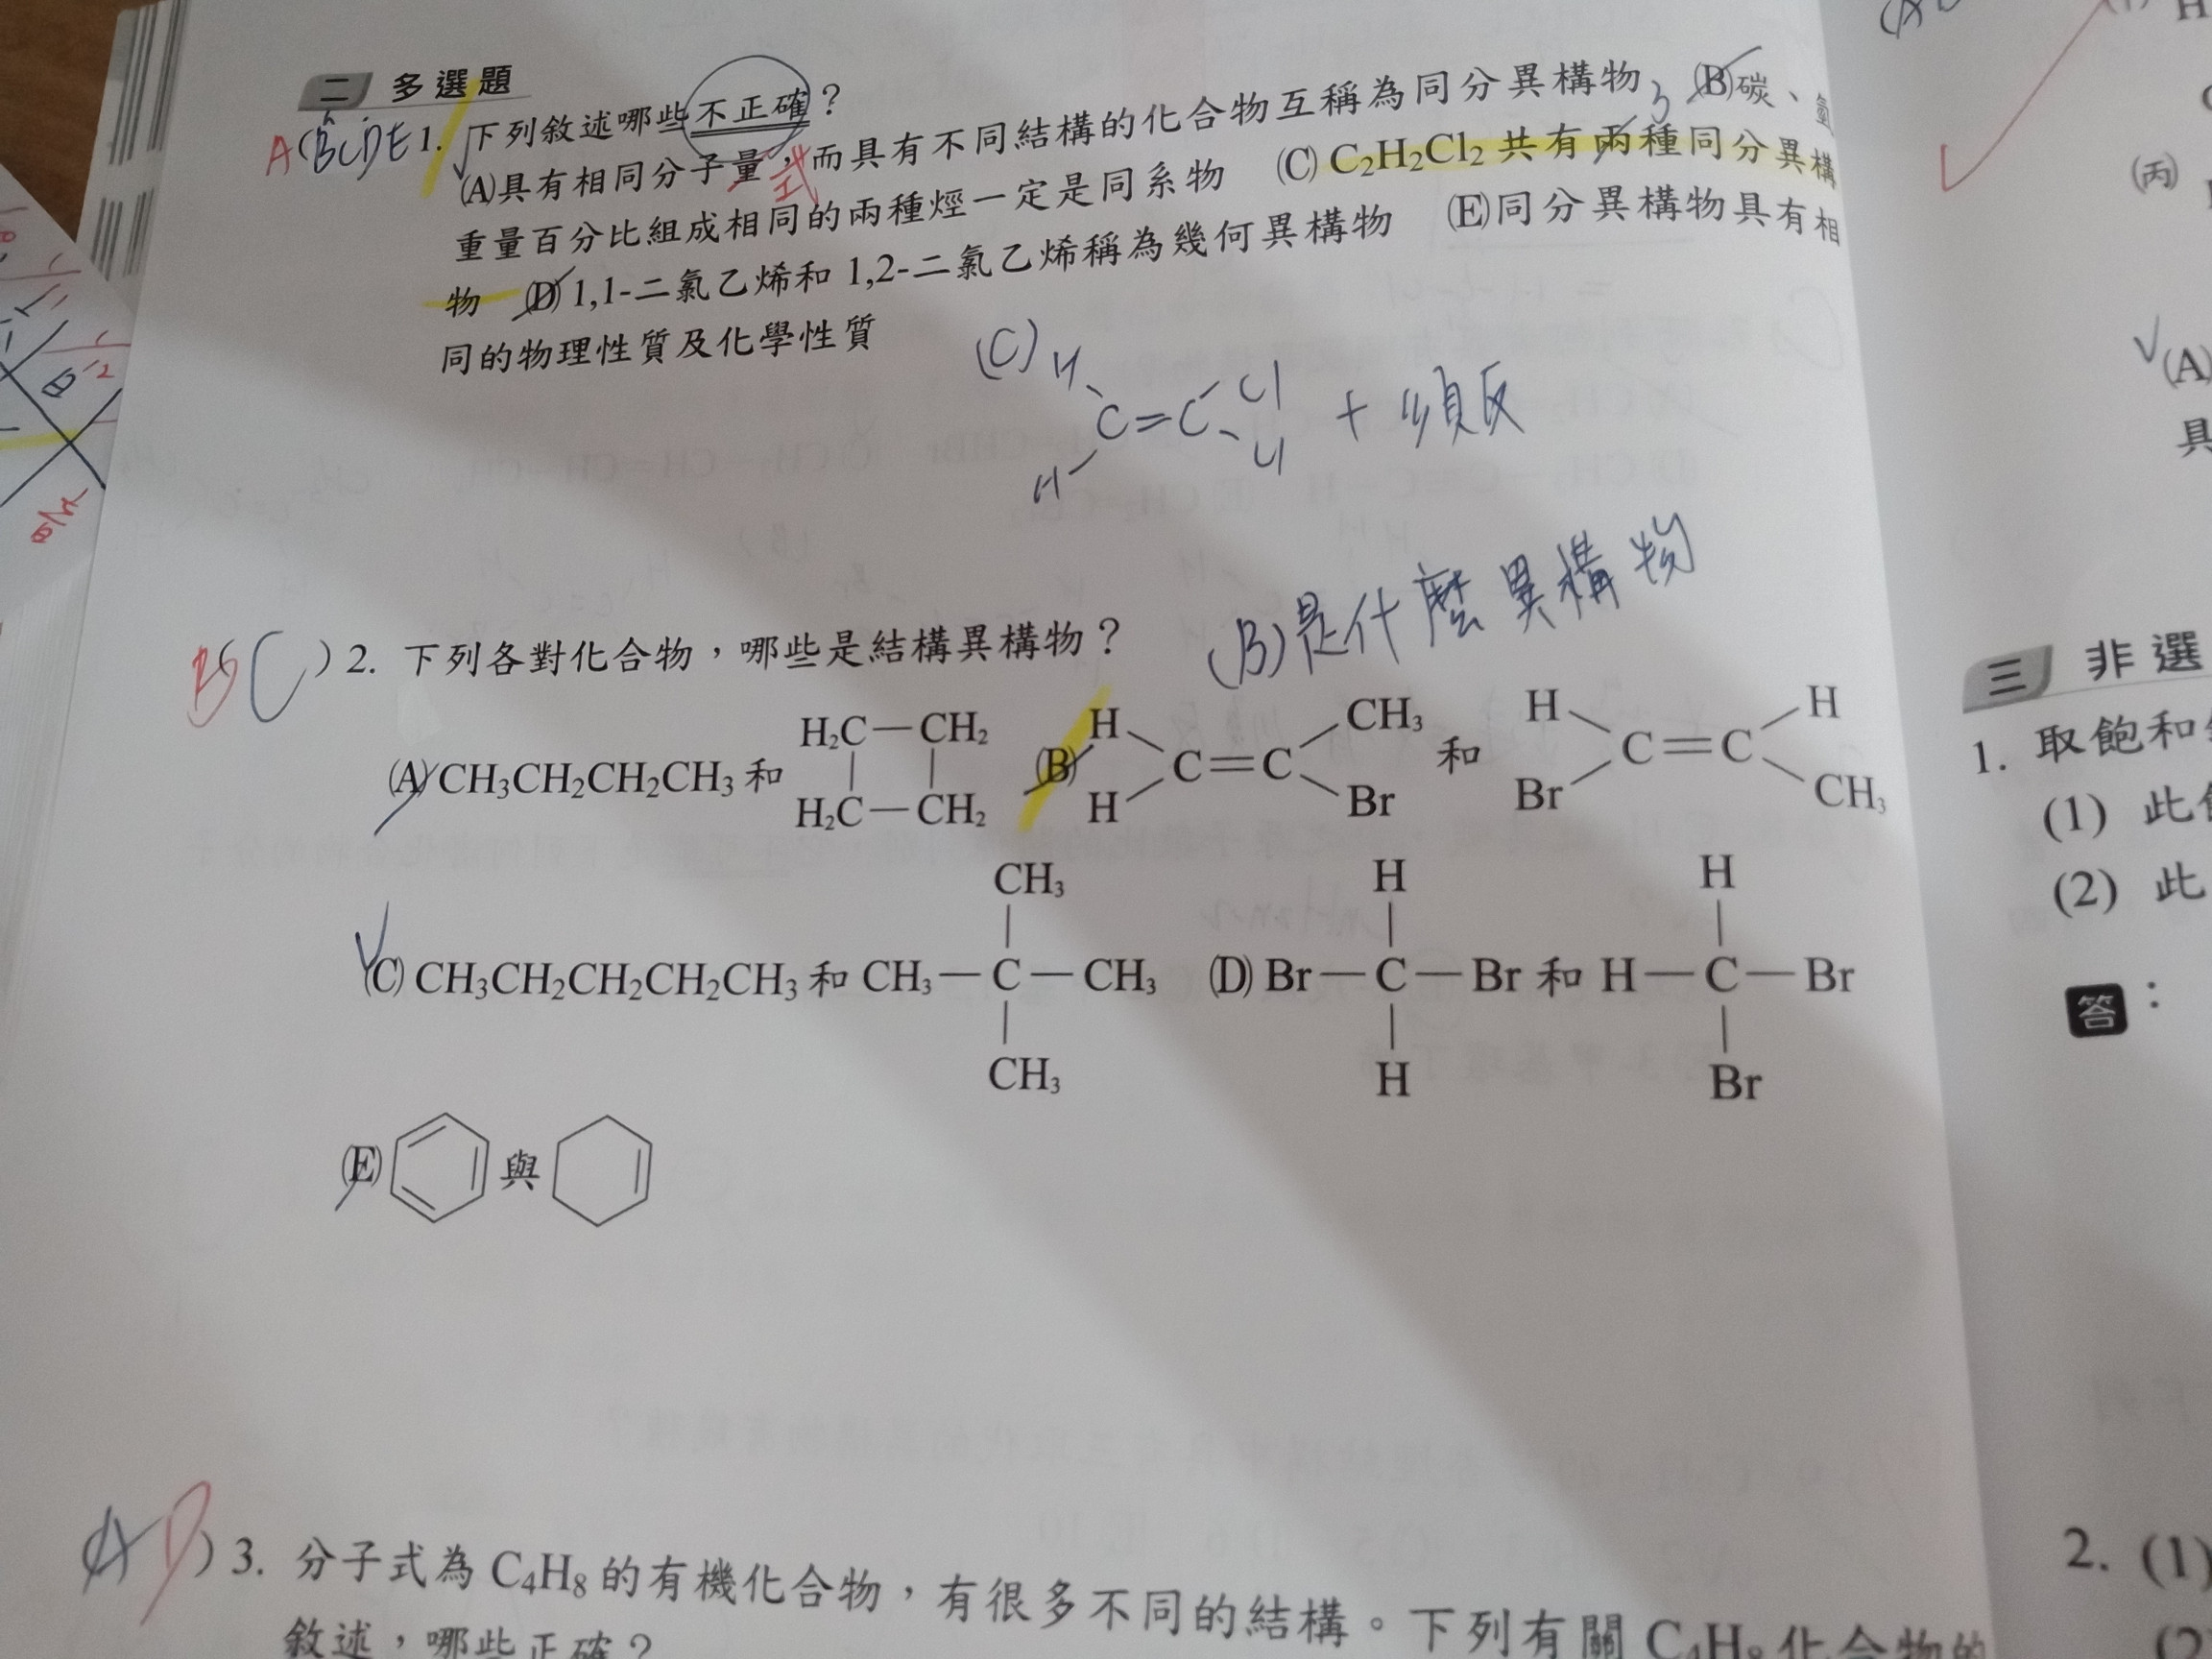 二 多選題
A(BCDE 1. 下列敘述哪些不正確？
(A)具有相同分子量，而具有不同結構的化合物互稱為同分異構物 (B)碳、氫
式
3
重量百分比組成相同的兩種烴一定是同系物 (C) C₂H₂Cl₂ 共有兩種同分異構
物 (D) 1,1-二氯乙烯和 1,2-二氯乙烯稱為幾何異構物 (E)同分異構物具有相
同的物理性質及化學性質
(C) H C=C Cl + 順反
H Cl
(B)是什麼異構物
B(C ) 2. 下列各對化合物，哪些是結構異構物？
(A) CH₃CH₂CH₂CH₃ 和 H₂C—CH₂ (B) H C=C CH₃ 和 H C=C H
H₂C—CH₂ H Br Br CH₃
CH₃ H H
(C) CH₃CH₂CH₂CH₂CH₃ 和 CH₃—C—CH₃ (D) Br—C—Br 和 H—C—Br
CH₃ H Br
(E) 與
AD ) 3. 分子式為 C₄H₈ 的有機化合物，有很多不同的結構。下列有關 C₄H₈ 化合物的
敘述，哪些正確？
(丙)
(A)
具
三 非選
1. 取飽和
(1) 此
(2) 此
答：
2. (1)
(2)